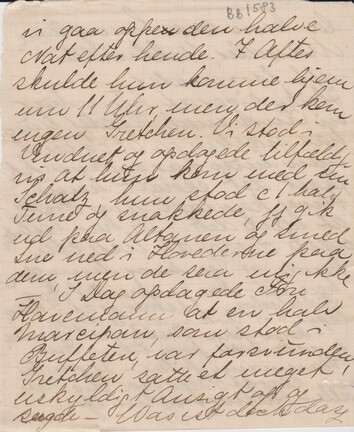 BB1583
vi gaa oppe den halve
Nat efter hende. I Aftes
skulde hun komme hjem
um 11 Uhr, men der kom
ingen Gretchen. Vi stod i
Vinduet og opdagede tilfældig-
vis at hun kom med en
Schatz, hun stod c 1 halv
Time og snakkede, jeg gik
ud paa Altanen og smed
Sne ned i Hovederne paa
dem, men de saa mig ikke
I Dag opdagede Fru
Havemann at en halv
Marcipan, som stod i
Buffeten, var forsvunden
Gretchen satte et meget
uskyldigt Ansigt op og
sagde – Was ist doch das